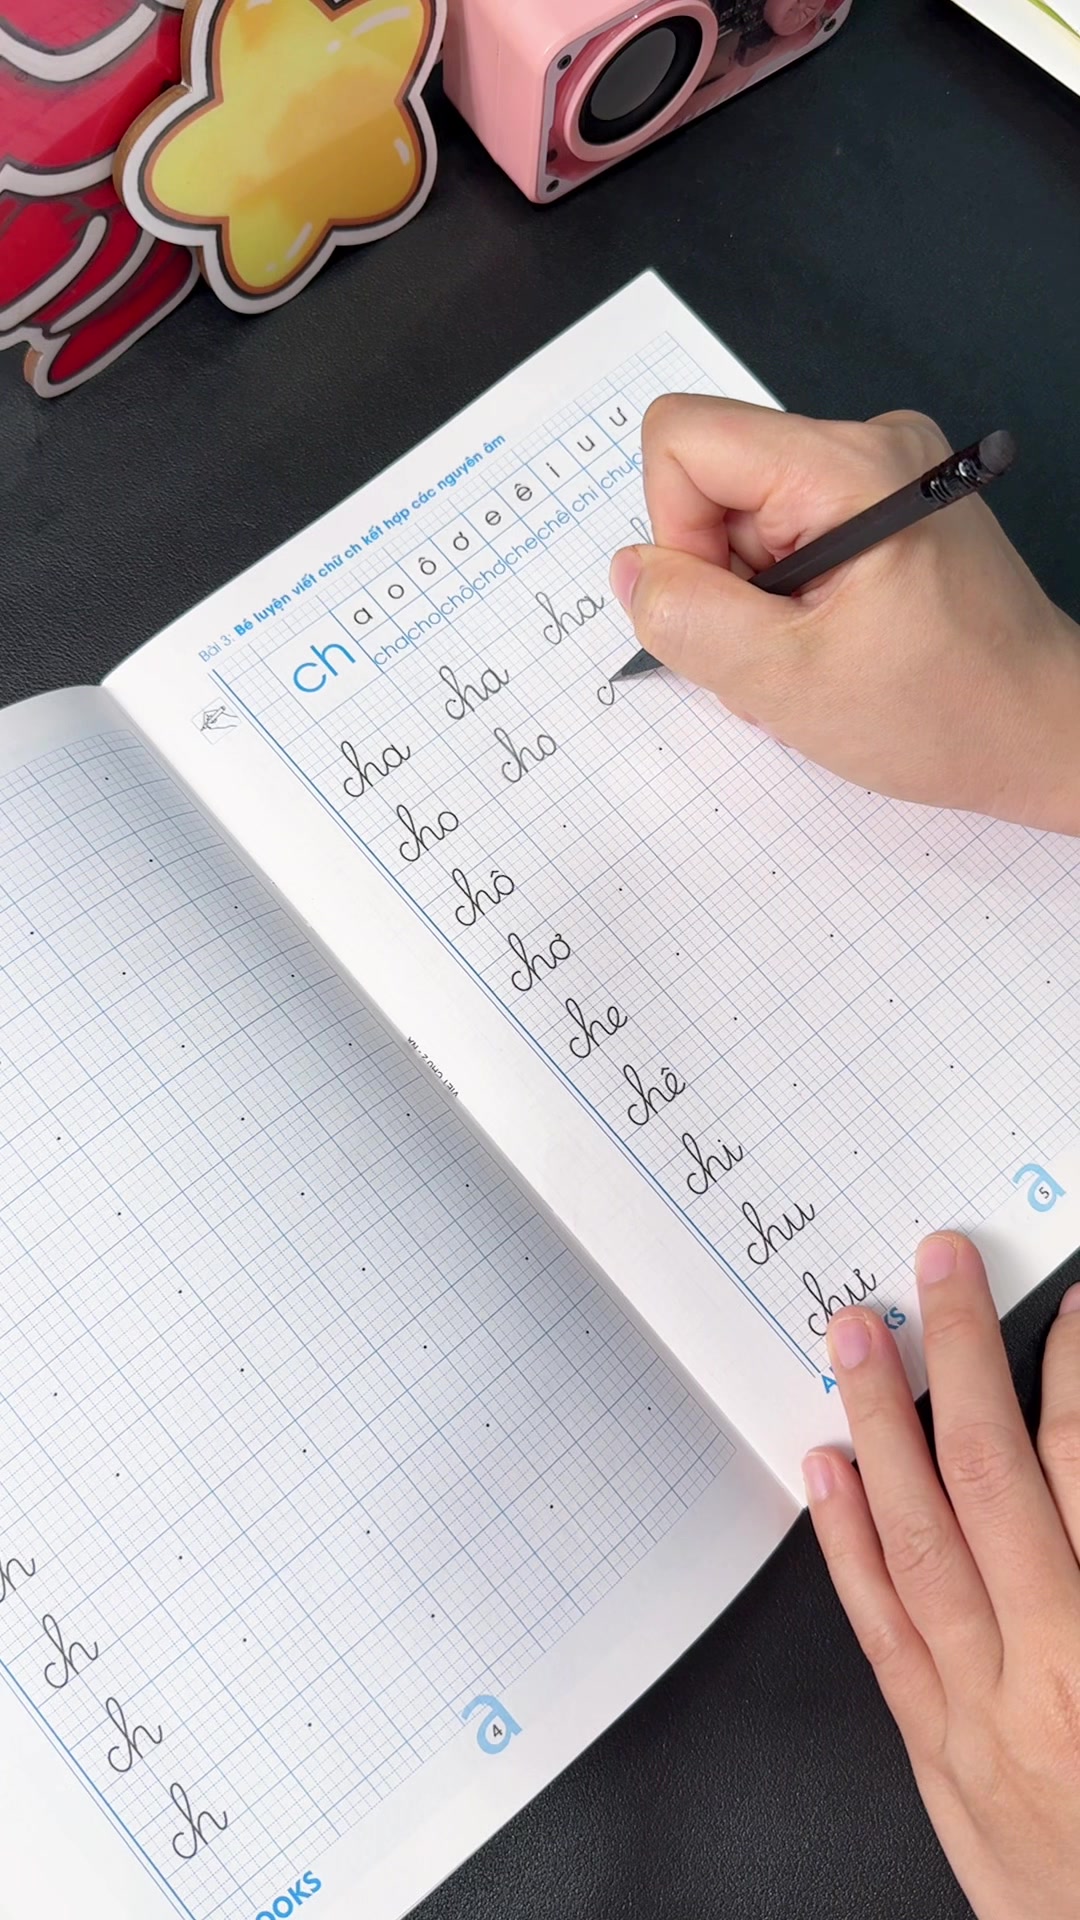 Bài 3: Bé luyện viết chữ ch kết hợp các nguyên âm
ch a o ô ơ e ê i u ư
cha cho chô chơ che chê chi chu
cha cha cha
cho cho c
chô
chơ
che
chê
chi
chu
chư
5
ch
ch
ch
4